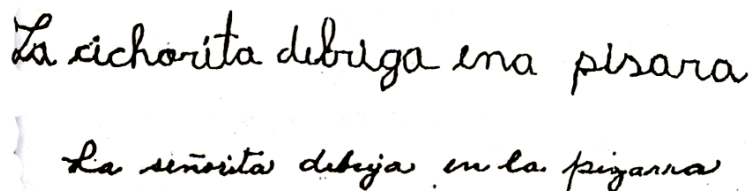 La cichoríta debriga ena pisara
La señorita debuja en la pizarra